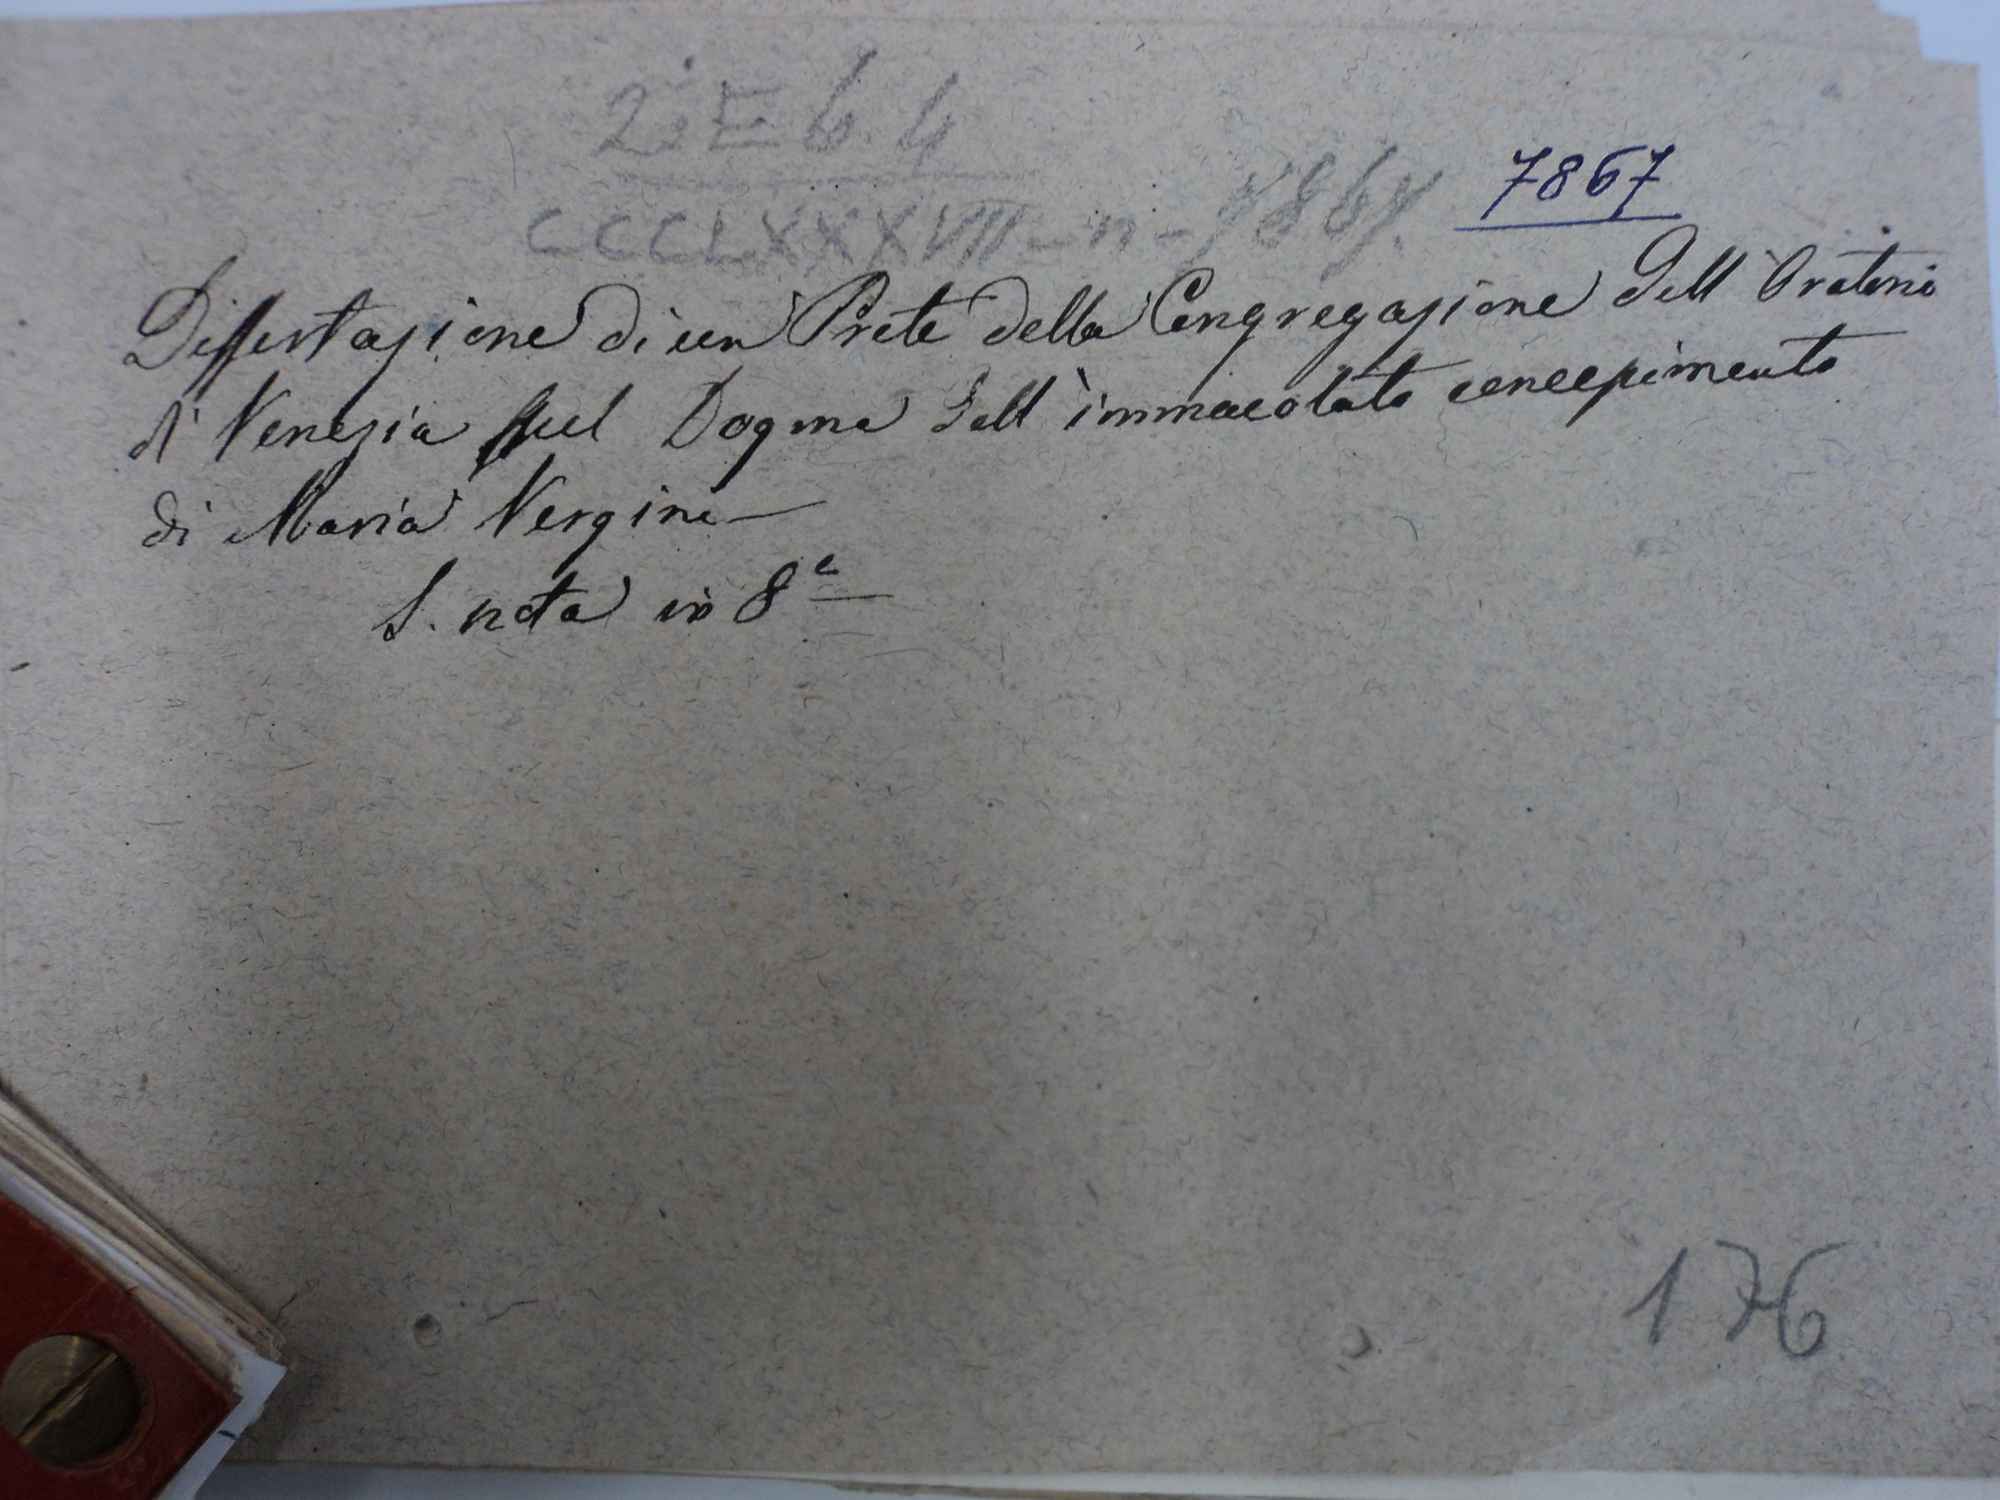 2. E 6. 4
CCCLXXXVII - n - 7867.
7867
Dissertazione di un Prete della Congregazione dell' Oratorio
di Venezia sul Dogma dell' immacolato concepimento
di Maria Vergine
S. nota in 8º
176